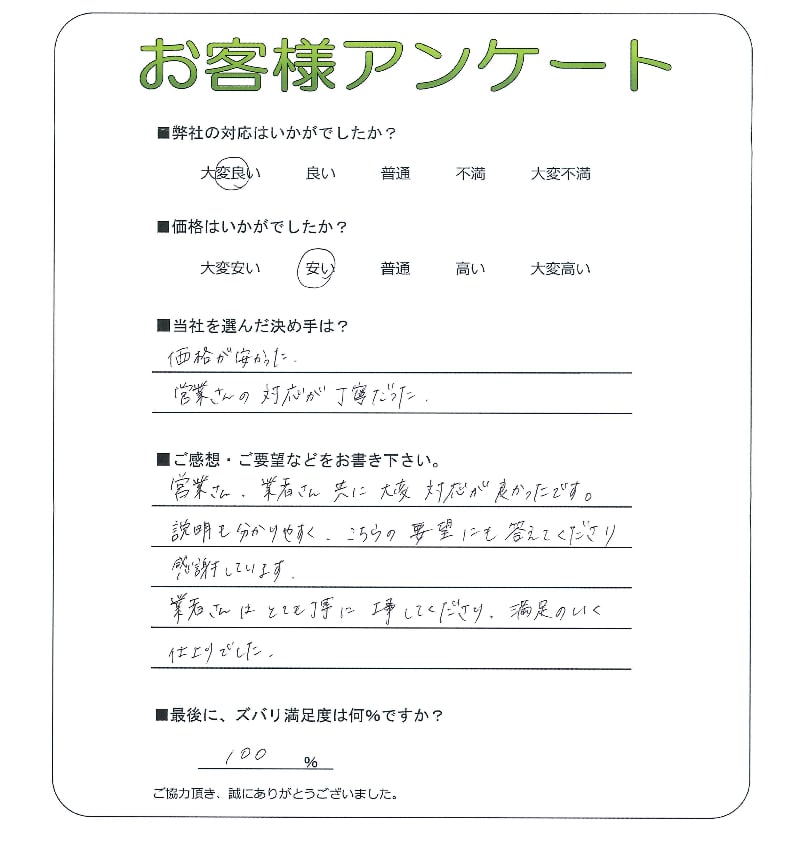 お客様アンケート
■弊社の対応はいかがでしたか？
大変良い 良い 普通 不満 大変不満
■価格はいかがでしたか？
大変安い 安い 普通 高い 大変高い
■当社を選んだ決め手は？
価格が安かった.
営業さんの対応が丁寧だった.
■ご感想・ご要望などをお書き下さい。
営業さん、業者さん共に大変対応が良かったです。
説明も分かりやすく、こちらの要望にも答えてくださり
感謝しています.
業者さんはとても丁寧に工事してくださり、満足のいく
仕上りでした.
■最後に、ズバリ満足度は何%ですか？
100 %
ご協力頂き、誠にありがとうございました。